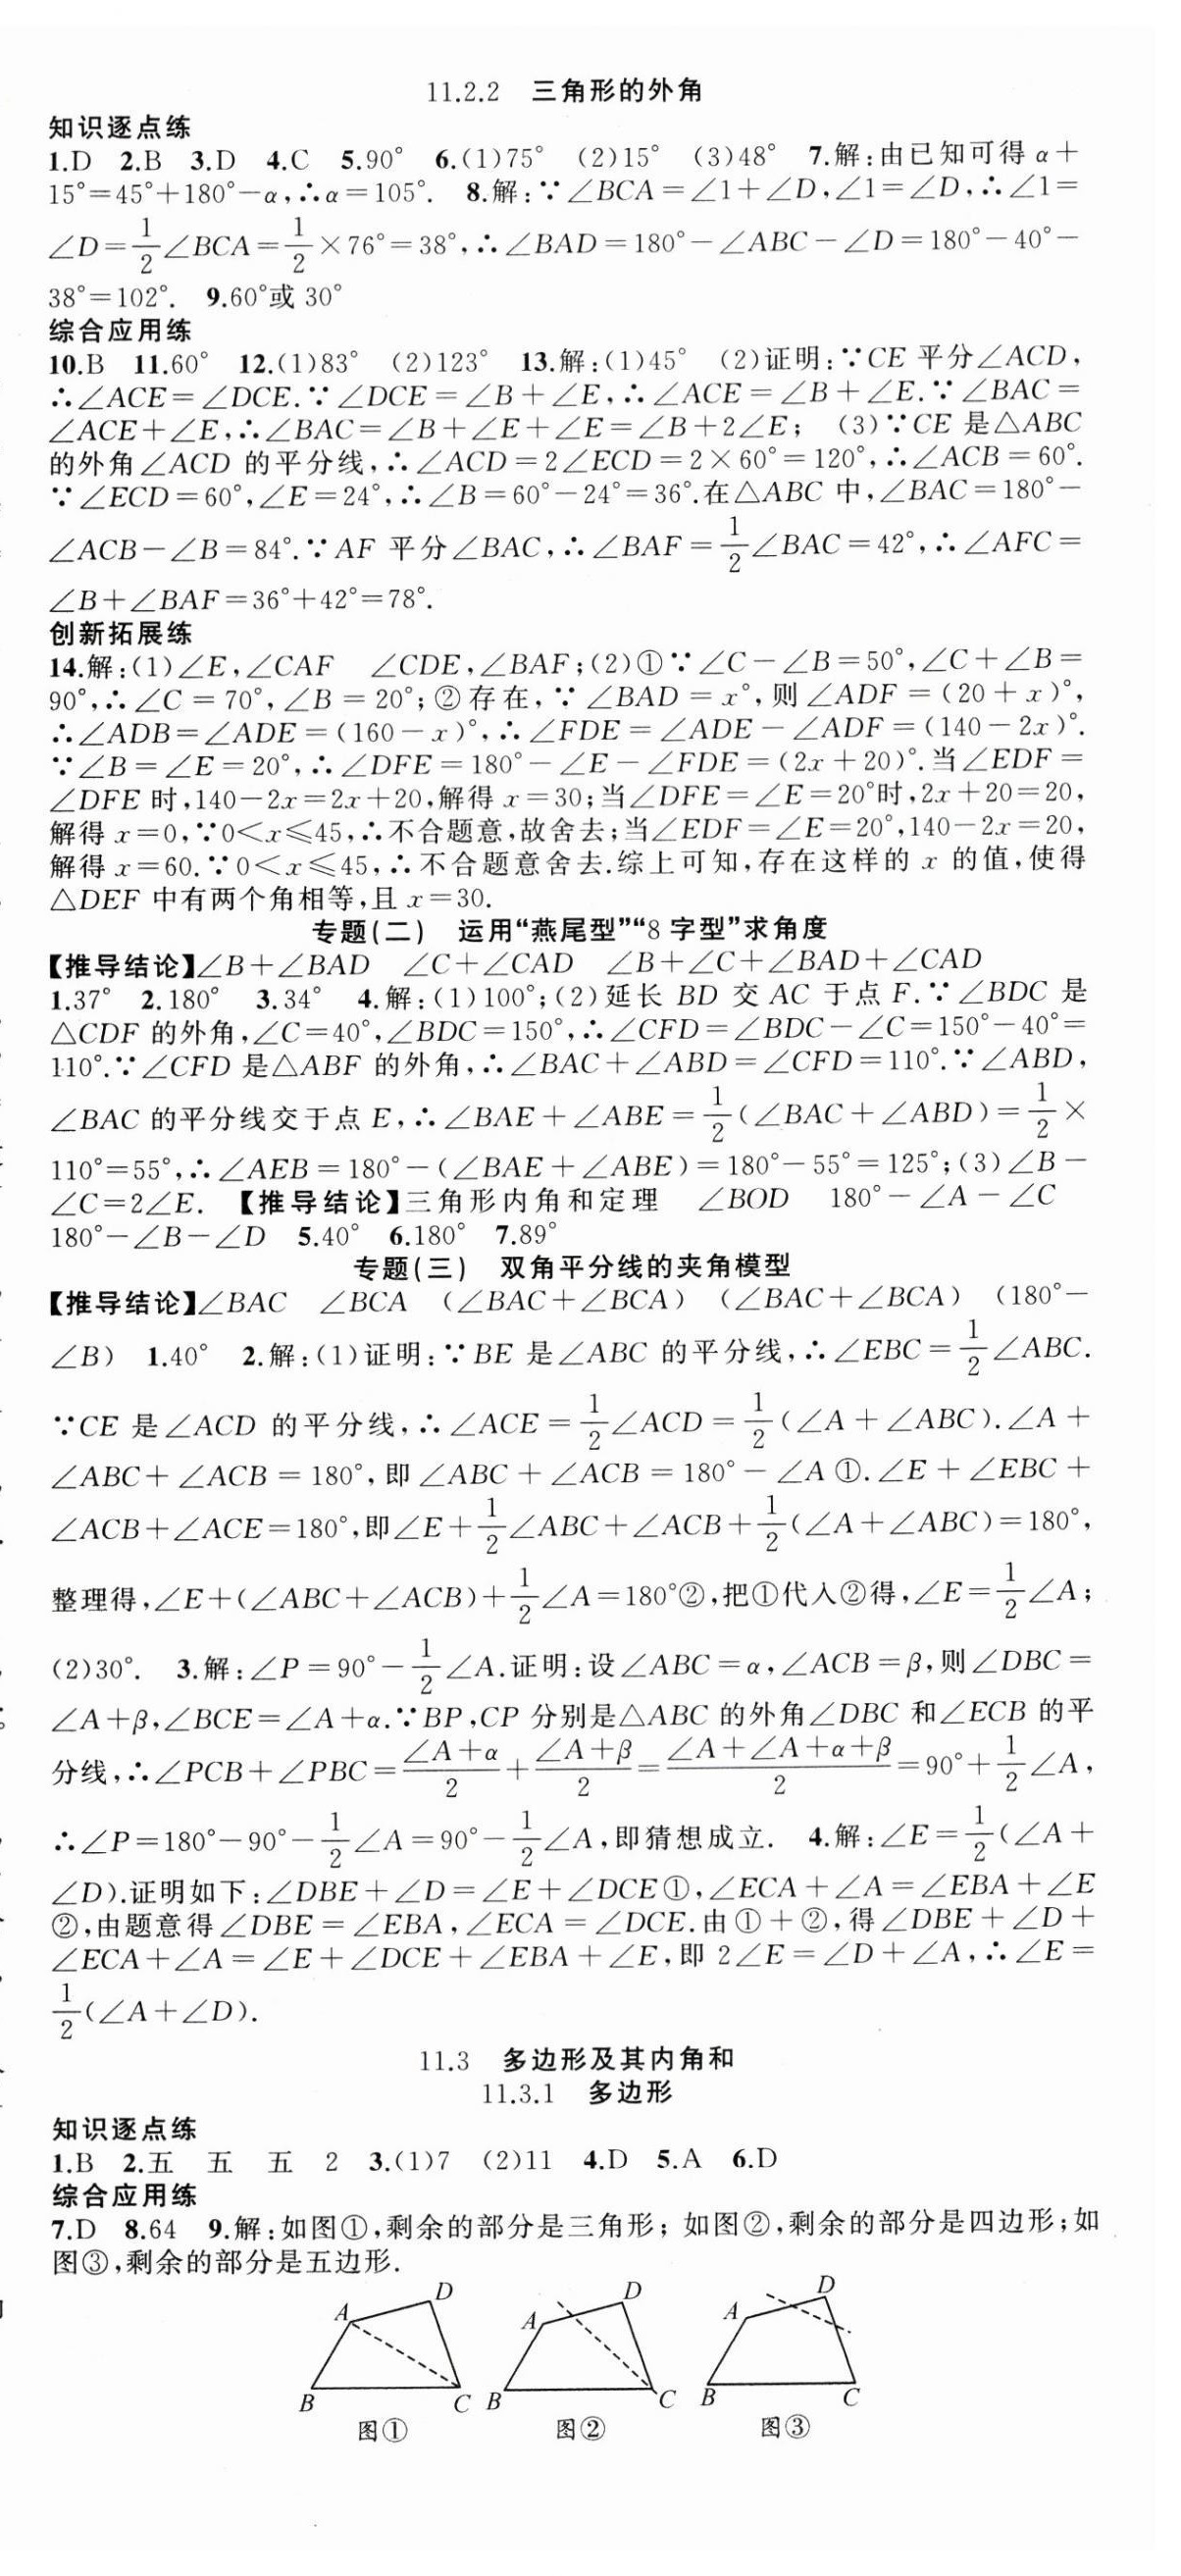 11.2.2 三角形的外角
知识逐点练
1.D 2.B 3.D 4.C 5.90° 6.(1)75° (2)15° (3)48° 7.解:由已知可得 α+
15°=45°+180°-α,∴α=105°. 8.解:∵∠BCA=∠1+∠D,∠1=∠D,∴∠1=
∠D=1/2∠BCA=1/2×76°=38°,∴∠BAD=180°-∠ABC-∠D=180°-40°-
38°=102°. 9.60°或 30°
综合应用练
10.B 11.60° 12.(1)83° (2)123° 13.解:(1)45° (2)证明:∵CE 平分∠ACD,
∴∠ACE=∠DCE.∵∠DCE=∠B+∠E,∴∠ACE=∠B+∠E.∵∠BAC=
∠ACE+∠E,∴∠BAC=∠B+∠E+∠E=∠B+2∠E; (3)∵CE 是△ABC
的外角∠ACD 的平分线,∴∠ACD=2∠ECD=2×60°=120°,∴∠ACB=60°.
∵∠ECD=60°,∠E=24°,∴∠B=60°-24°=36°.在△ABC 中,∠BAC=180°-
∠ACB-∠B=84°.∵AF 平分∠BAC,∴∠BAF=1/2∠BAC=42°,∴∠AFC=
∠B+∠BAF=36°+42°=78°.
创新拓展练
14.解:(1)∠E,∠CAF ∠CDE,∠BAF;(2)①∵∠C-∠B=50°,∠C+∠B=
90°,∴∠C=70°,∠B=20°;②存在,∵∠BAD=x°,则∠ADF=(20+x)°,
∴∠ADB=∠ADE=(160-x)°,∴∠FDE=∠ADE-∠ADF=(140-2x)°.
∵∠B=∠E=20°,∴∠DFE=180°-∠E-∠FDE=(2x+20)°.当∠EDF=
∠DFE 时,140-2x=2x+20,解得 x=30;当∠DFE=∠E=20°时,2x+20=20,
解得 x=0,∵0<x≤45,∴不合题意,故舍去;当∠EDF=∠E=20°,140-2x=20,
解得 x=60.∵0<x≤45,∴不合题意舍去.综上可知,存在这样的 x 的值,使得
△DEF 中有两个角相等,且 x=30.
专题(二) 运用“燕尾型”“8 字型”求角度
【推导结论】∠B+∠BAD ∠C+∠CAD ∠B+∠C+∠BAD+∠CAD
1.37° 2.180° 3.34° 4.解:(1)100°;(2)延长 BD 交 AC 于点 F.∵∠BDC 是
△CDF 的外角,∠C=40°,∠BDC=150°,∴∠CFD=∠BDC-∠C=150°-40°=
110°.∵∠CFD 是△ABF 的外角,∴∠BAC+∠ABD=∠CFD=110°.∵∠ABD,
∠BAC 的平分线交于点 E,∴∠BAE+∠ABE=1/2(∠BAC+∠ABD)=1/2×
110°=55°,∴∠AEB=180°-(∠BAE+∠ABE)=180°-55°=125°;(3)∠B-
∠C=2∠E. 【推导结论】三角形内角和定理 ∠BOD 180°-∠A-∠C
180°-∠B-∠D 5.40° 6.180° 7.89°
专题(三) 双角平分线的夹角模型
【推导结论】∠BAC ∠BCA (∠BAC+∠BCA) (∠BAC+∠BCA) (180°-
∠B) 1.40° 2.解:(1)证明:∵BE 是∠ABC 的平分线,∴∠EBC=1/2∠ABC.
∵CE 是∠ACD 的平分线,∴∠ACE=1/2∠ACD=1/2(∠A+∠ABC).∠A+
∠ABC+∠ACB=180°,即∠ABC+∠ACB=180°-∠A①.∠E+∠EBC+
∠ACB+∠ACE=180°,即∠E+1/2∠ABC+∠ACB+1/2(∠A+∠ABC)=180°,
整理得,∠E+(∠ABC+∠ACB)+1/2∠A=180°②,把①代入②得,∠E=1/2∠A;
(2)30°. 3.解:∠P=90°-1/2∠A.证明:设∠ABC=α,∠ACB=β,则∠DBC=
∠A+β,∠BCE=∠A+α.∵BP,CP 分别是△ABC 的外角∠DBC 和∠ECB 的平
分线,∴∠PCB+∠PBC=(∠A+α)/2+(∠A+β)/2=(∠A+∠A+α+β)/2=90°+1/2∠A,
∴∠P=180°-90°-1/2∠A=90°-1/2∠A,即猜想成立. 4.解:∠E=1/2(∠A+
∠D).证明如下:∠DBE+∠D=∠E+∠DCE①,∠ECA+∠A=∠EBA+∠E
②,由题意得∠DBE=∠EBA,∠ECA=∠DCE.由①+②,得∠DBE+∠D+
∠ECA+∠A=∠E+∠DCE+∠EBA+∠E,即 2∠E=∠D+∠A,∴∠E=
1/2(∠A+∠D).
11.3 多边形及其内角和
11.3.1 多边形
知识逐点练
1.B 2.五 五 五 2 3.(1)7 (2)11 4.D 5.A 6.D
综合应用练
7.D 8.64 9.解:如图①,剩余的部分是三角形;如图②,剩余的部分是四边形;如
图③,剩余的部分是五边形.
A D B C
图①
A D B C
图②
A D B C
图③